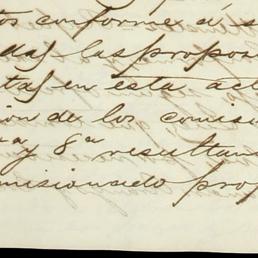 tos conforme á s
das las propos
tas en esta act
ion de los comisi
a y 8ª resultan
misionado prop